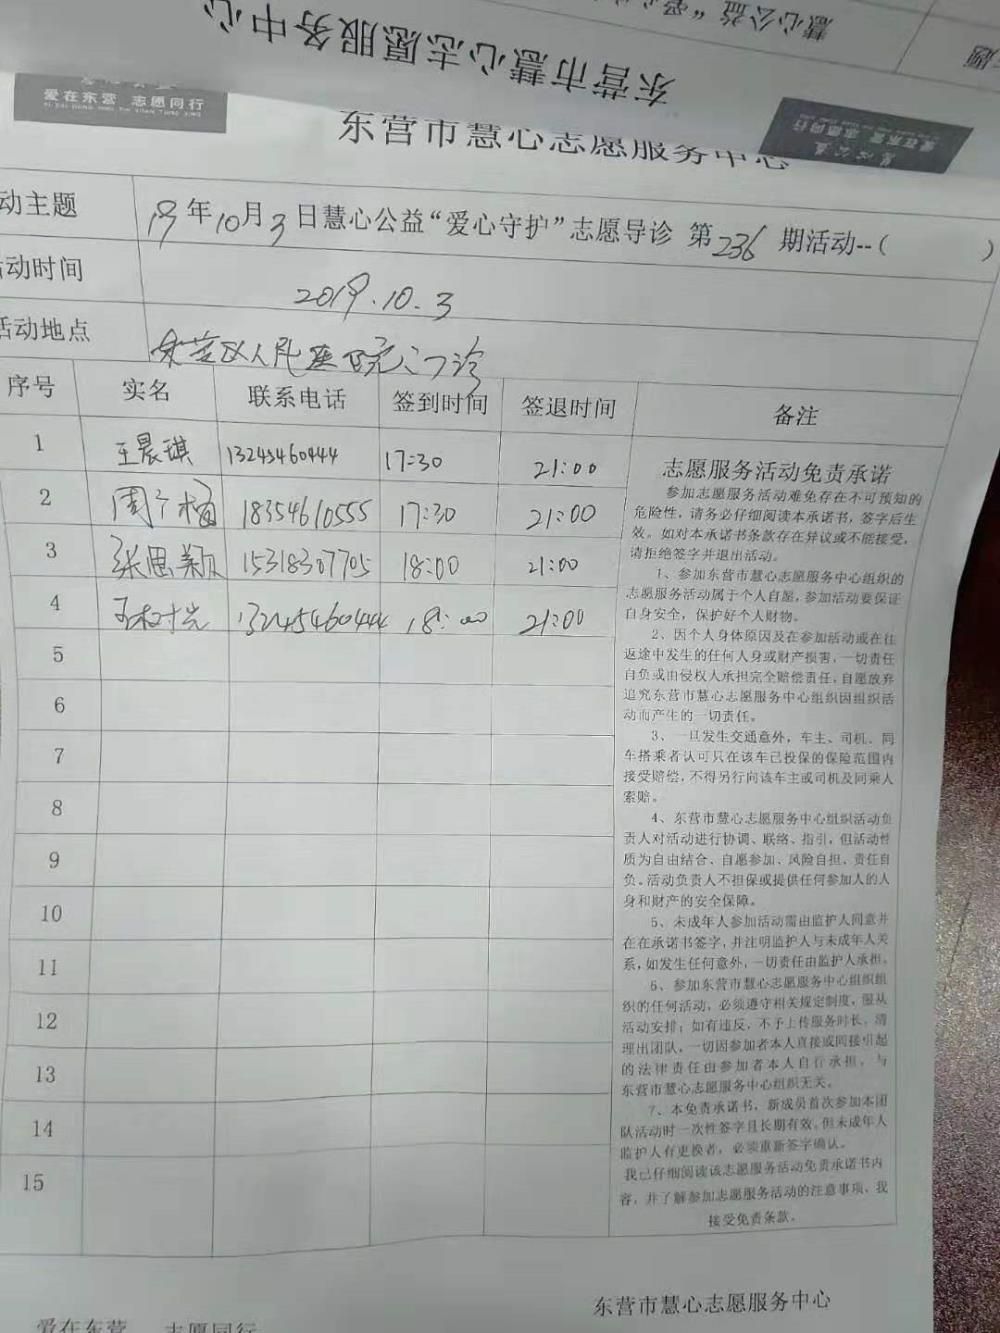 慧心公益“爱心
东营市慧心志愿服务中心
爱在东营 志愿同行
慧心公益
爱在东营 志愿同行
东营市慧心志愿服务中心
动主题 19年10月3日慧心公益“爱心守护”志愿导诊 第236期活动--( )
活动时间 2019.10.3
活动地点 东营区人民医院门诊
序号 实名 联系电话 签到时间 签退时间 备注
1 王晨琪 13245460444 17:30 21:00
2 周 18354610555 17:30 21:00
3 张思颖 15318307705 18:00 21:00
4 13245460444 18:00 21:00
5
6
7
8
9
10
11
12
13
14
15
志愿服务活动免责承诺
参加志愿服务活动难免存在不可预知的
危险性，请务必仔细阅读本承诺书，签字后生
效。如对本承诺书条款存在异议或不能接受，
请拒绝签字并退出活动。
1、参加东营市慧心志愿服务中心组织的
志愿服务活动属于个人自愿，参加活动要保证
自身安全，保护好个人财物。
2、因个人身体原因及在参加活动或在往
返途中发生的任何人身或财产损害，一切责任
自负或由侵权人承担完全赔偿责任，自愿放弃
追究东营市慧心志愿服务中心组织因组织活
动而产生的一切责任。
3、一旦发生交通意外，车主、司机、同
车搭乘者认可只在该车已投保的保险范围内
接受赔偿，不得另行向该车主或司机及同乘人
索赔。
4、东营市慧心志愿服务中心组织活动负
责人对活动进行协调、联络、指引，但活动性
质为自由结合、自愿参加、风险自担、责任自
负。活动负责人不担保或提供任何参加人的人
身和财产的安全保障。
5、未成年人参加活动需由监护人同意并
在在承诺书签字，并注明监护人与未成年人关
系，如发生任何意外，一切责任由监护人承担。
6、参加东营市慧心志愿服务中心组织组
织的任何活动，必须遵守相关规定制度，服从
活动安排；如有违反，不予上传服务时长，清
理出团队，一切因参加者本人直接或间接引起
的法律责任由参加者本人自行承担，与
东营市慧心志愿服务中心组织无关。
7、本免责承诺书，新成员首次参加本团
队活动时一次性签字且长期有效。但未成年人
监护人有更换者，必须重新签字确认。
我已仔细阅读该志愿服务活动免责承诺书内
容，并了解参加志愿服务活动的注意事项，我
接受免责条款。
东营市慧心志愿服务中心
爱在东营 志愿同行